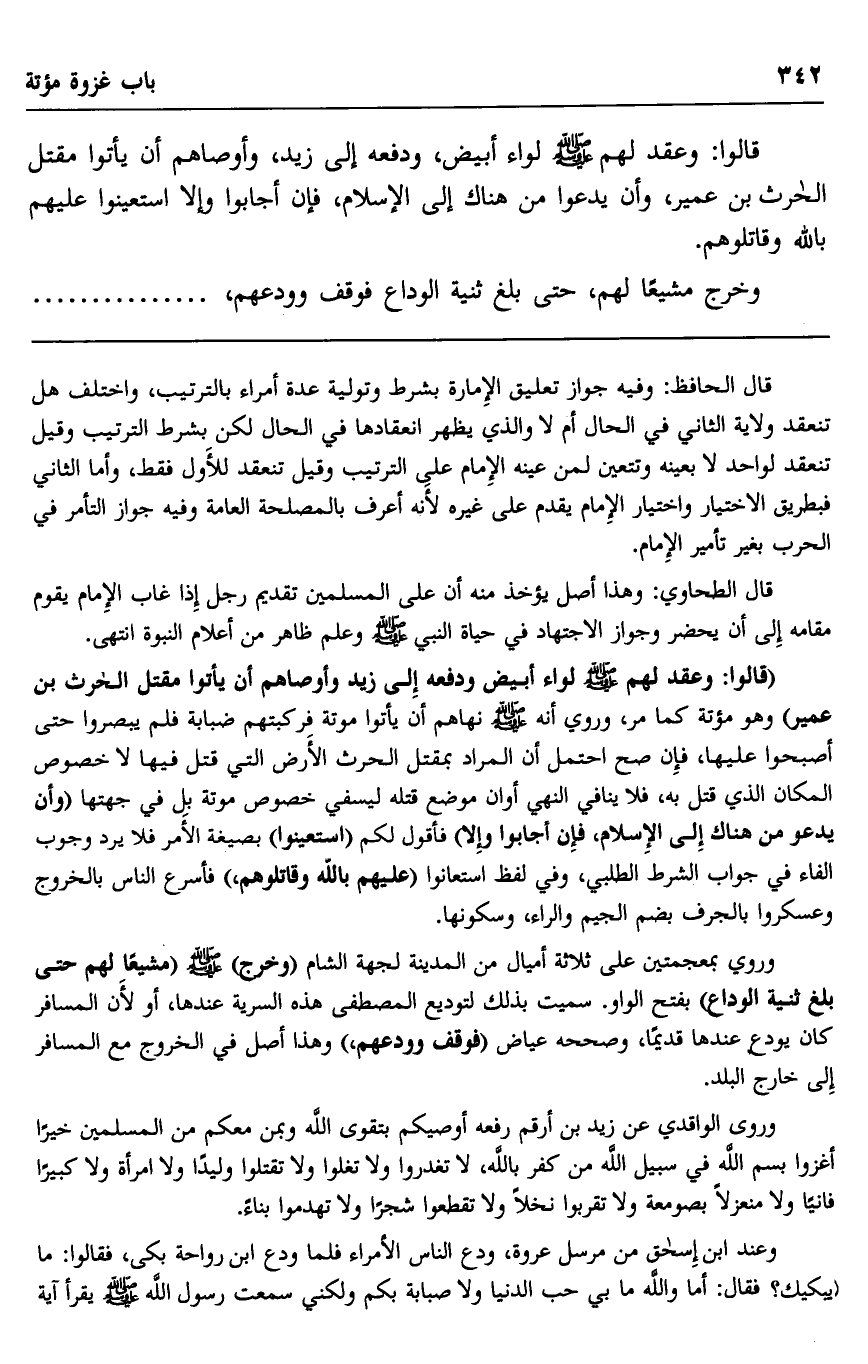 ٣٤٢ باب غزوة مؤتة
قالوا: وعقد لهم ﷺ لواء أبيض، ودفعه إلى زيد، وأوصاهم أن يأتوا مقتل
الحٰرث بن عمير، وأن يدعوا من هناك إلى الإسلام، فإن أجابوا وإلا استعينوا عليهم
بالله وقاتلوهم.
وخرج مشيعًا لهم، حتى بلغ ثنية الوداع فوقف وودعهم، ...............
قال الحافظ: وفيه جواز تعليق الإمارة بشرط وتولية عدة أمراء بالترتيب، واختلف هل
تنعقد ولاية الثاني في الحال أم لا والذي يظهر انعقادها في الحال لكن بشرط الترتيب وقيل
تنعقد لواحد لا بعينه وتتعين لمن عينه الإمام على الترتيب وقيل تنعقد للأول فقط، وأما الثاني
فبطريق الاختيار واختيار الإمام يقدم على غيره لأنه أعرف بالمصلحة العامة وفيه جواز التأمر في
الحرب بغير تأمير الإمام.
قال الطحاوي: وهذا أصل يؤخذ منه أن على المسلمين تقديم رجل إذا غاب الإمام يقوم
مقامه إلى أن يحضر وجواز الاجتهاد في حياة النبي ﷺ وعلم ظاهر من أعلام النبوة انتهى.
(قالوا: وعقد لهم ﷺ لواء أبيض ودفعه إلى زيد وأوصاهم أن يأتوا مقتل الحرث بن
عمير) وهو مؤتة كما مر، وروي أنه ﷺ نهاهم أن يأتوا موتة فركبتهم ضبابة فلم يبصروا حتى
أصبحوا عليها، فإن صح احتمل أن المراد بمقتل الحرث الأرض التي قتل فيها لا خصوص
المكان الذي قتل به، فلا ينافي النهي أوان موضع قتله ليسفي خصوص موتة بل في جهتها (وأن
يدعو من هناك إلى الإسلام، فإن أجابوا وإلا) فأقول لكم (استعينوا) بصيغة الأمر فلا يرد وجوب
الفاء في جواب الشرط الطلبي، وفي لفظ استعانوا (عليهم بالله وقاتلوهم،) فأسرع الناس بالخروج
وعسكروا بالجرف بضم الجيم والراء، وسكونها.
وروي بمعجمتين على ثلاثة أميال من المدينة لجهة الشام (وخرج) ﷺ (مشيعًا لهم حتى
بلغ ثنية الوداع) بفتح الواو. سميت بذلك لتوديع المصطفى هذه السرية عندها، أو لأن المسافر
كان يودع عندها قديمًا، وصححه عياض (فوقف وودعهم،) وهذا أصل في الخروج مع المسافر
إلى خارج البلد.
وروى الواقدي عن زيد بن أرقم رفعه أوصيكم بتقوى اللَّه وبمن معكم من المسلمين خيرًا
أغزوا بسم اللَّه في سبيل اللَّه من كفر باللَّه، لا تغدروا ولا تغلوا ولا تقتلوا وليدًا ولا امرأة ولا كبيرًا
فانيًا ولا منعزلاً بصومعة ولا تقربوا نخلاً ولا تقطعوا شجرًا ولا تهدموا بناءً.
وعند ابن إسحٰق من مرسل عروة، ودع الناس الأمراء فلما ودع ابن رواحة بكى، فقالوا: ما
(يبكيك؟ فقال: أما واللَّه ما بي حب الدنيا ولا صبابة بكم ولكني سمعت رسول اللَّه ﷺ يقرأ آية